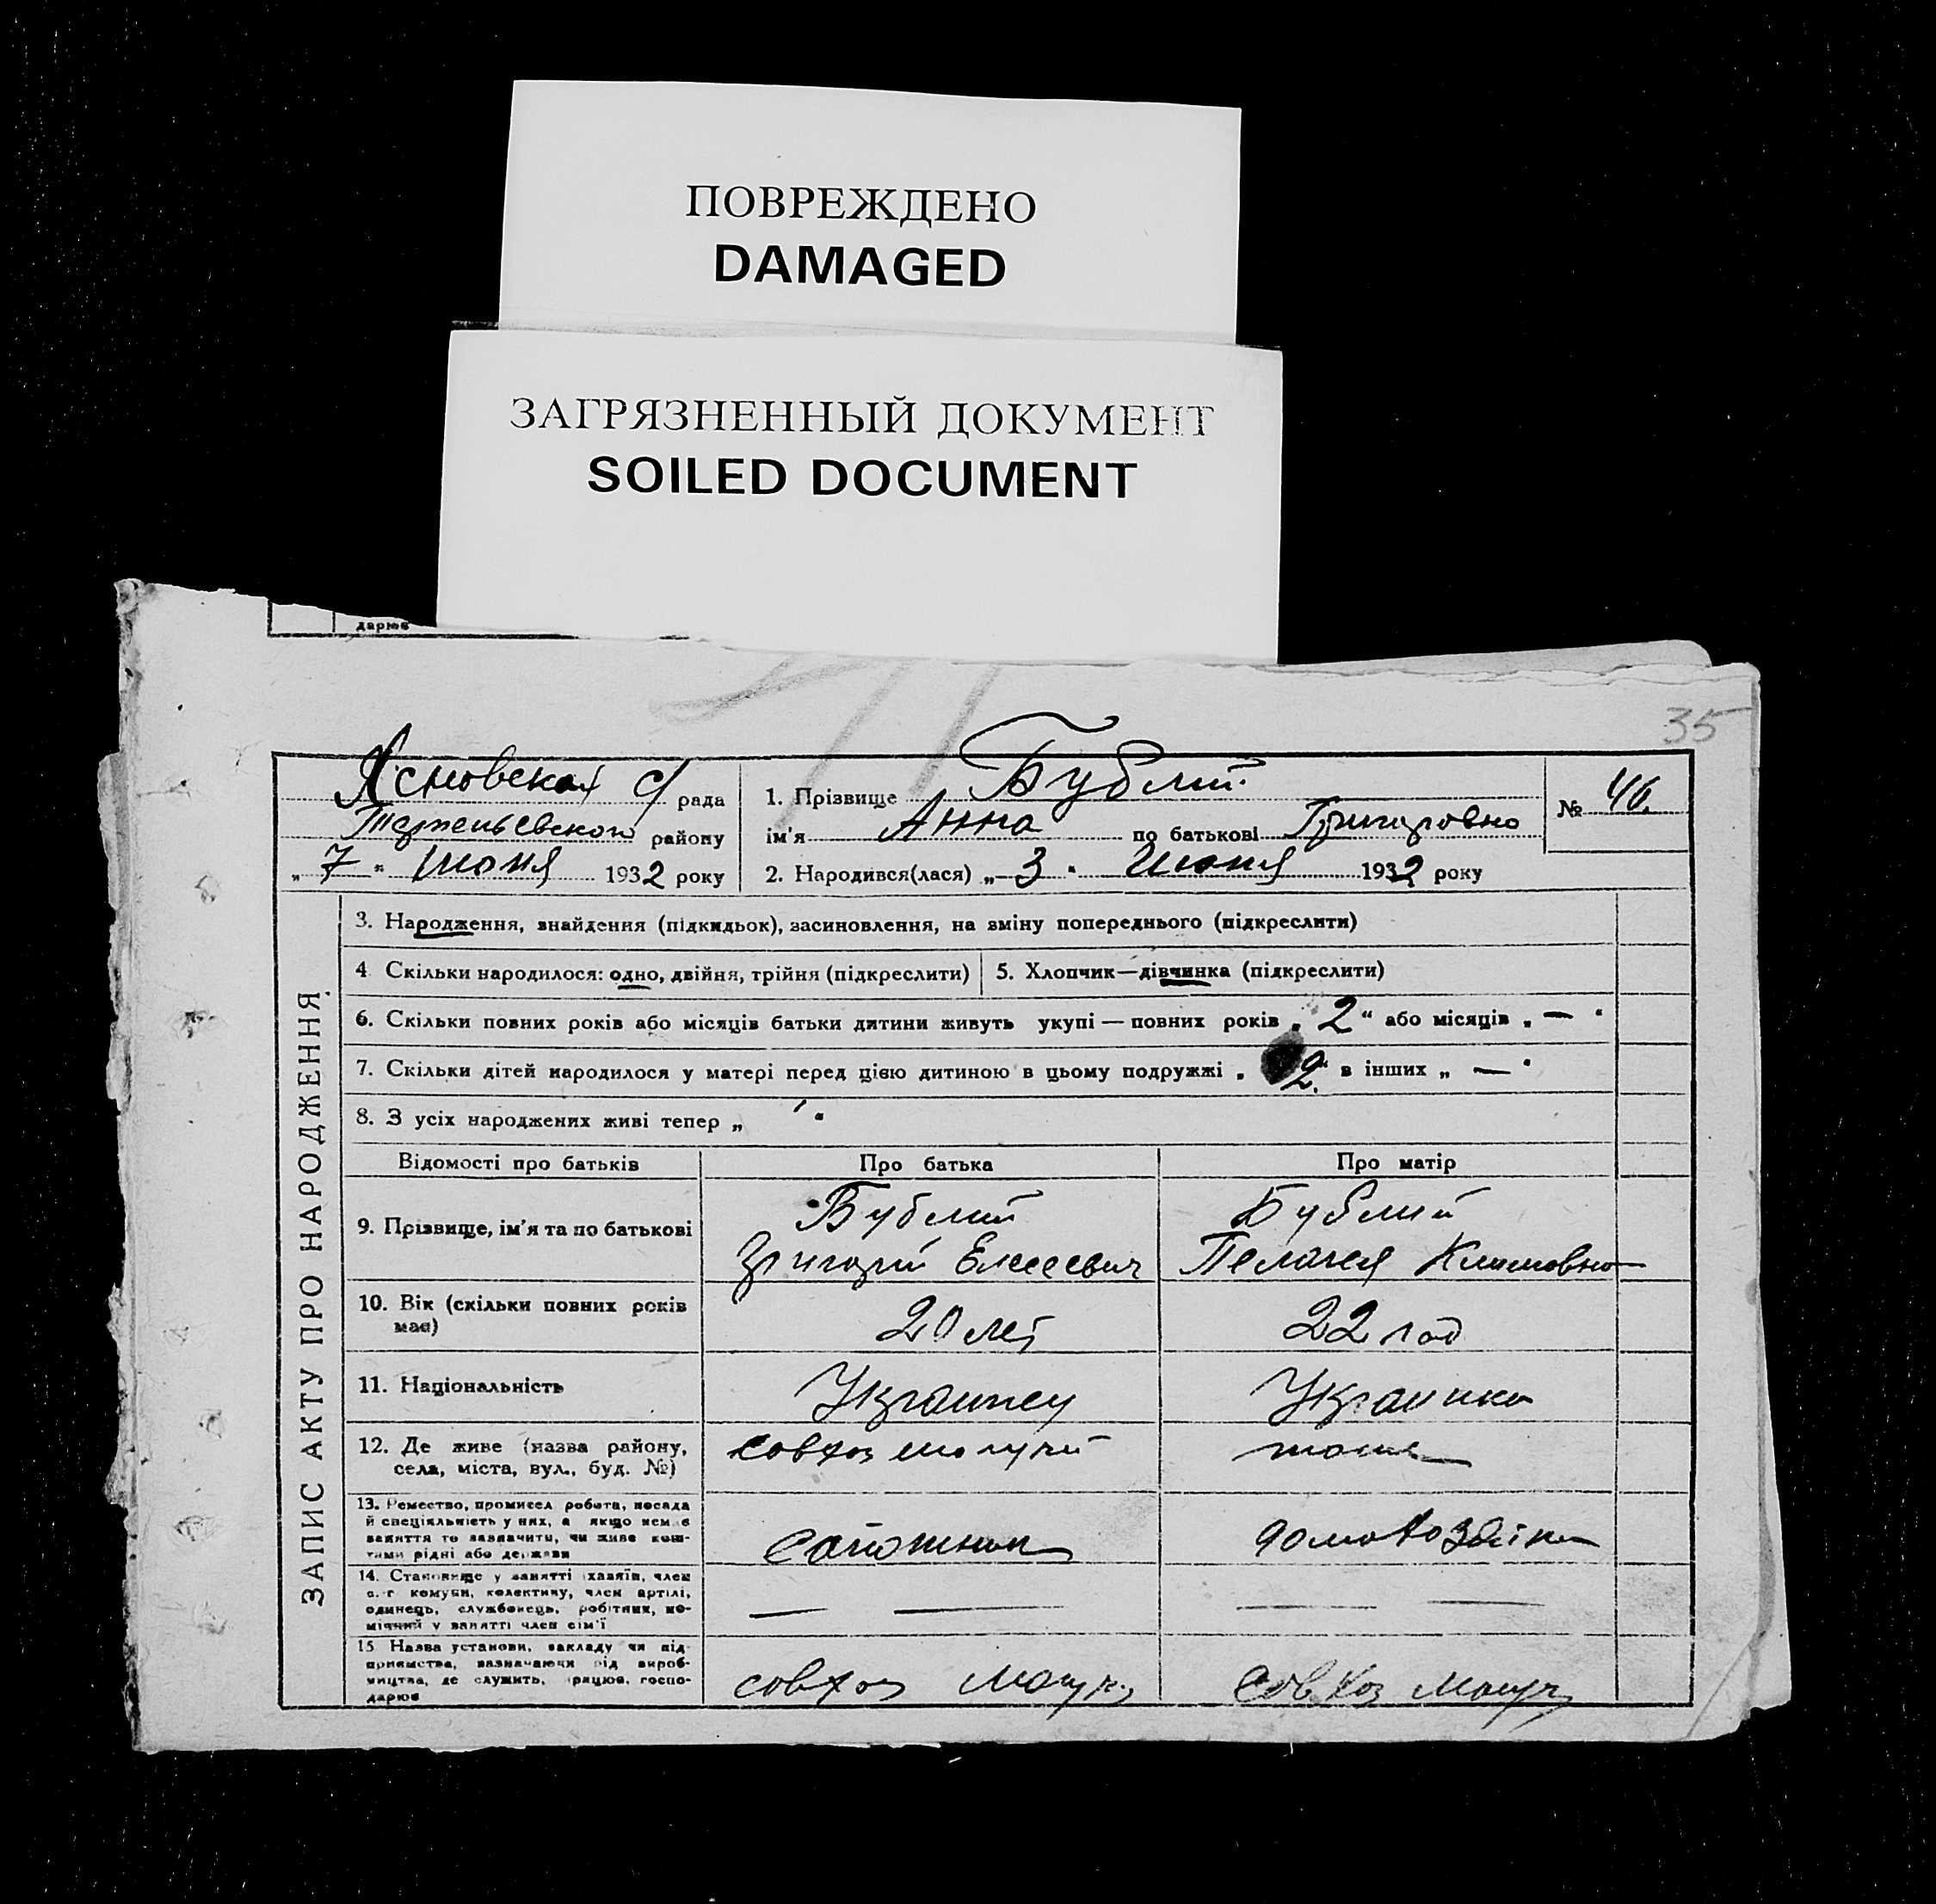 ПОВРЕЖДЕНО
DAMAGED
ЗАГРЯЗНЕННЫЙ ДОКУМЕНТ
SOILED DOCUMENT
дарює
35
Ясновская с/ рада
району
„ 7 " июня 1932 року
1. Прізвище Бублий
ім'я Анна по батькові Григоровна
№ 46.
2. Народився(лася) „ 3 " Июня 1932 року
ЗАПИС АКТУ ПРО НАРОДЖЕННЯ
3. Народження, знайдення (підкидьок), засиновлення, на зміну попереднього (підкреслити)
4 Скільки народилося: одно, двійня, трійня (підкреслити)
5. Хлопчик—дівчинка (підкреслити)
6. Скільки повних років або місяців батьки дитини живуть укупі — повних років „ 2 " або місяців „ — "
7. Скільки дітей народилося у матері перед цією дитиною в цьому подружжі „ 2. " в інших „ — "
8. З усіх народжених живі тепер „ "
Відомості про батьків
Про батька
Про матір
9. Прізвище, ім'я та по батькові
Бублий
Григорий Елисеевич
Бублий
Пелагея Климовна
10. Вік (скільки повних років
має)
20 лет
22 год
11. Національність
Украинец
Украинка
12. Де живе (назва району,
села, міста, вул., буд. №)
совхоз
тоже
13. Ремество, промисел робота, посада
й спеціяльність у них, а якщо нема є
заняття то зазначити, чи живе кош-
тами рідні або держави
сапожник
домохозяйка
14. Становище у занятті хазяїн, член
с.-г комуни, колективу, член артілі,
одинець, службовець, робітник, по-
мічний у занятті член сім'ї
— —
— —
15 Назва установи, закладу чи під-
приємства, зазначаючи рід вироб-
ництва, де служить, працює, госпо-
дарює
совхоз
совхоз